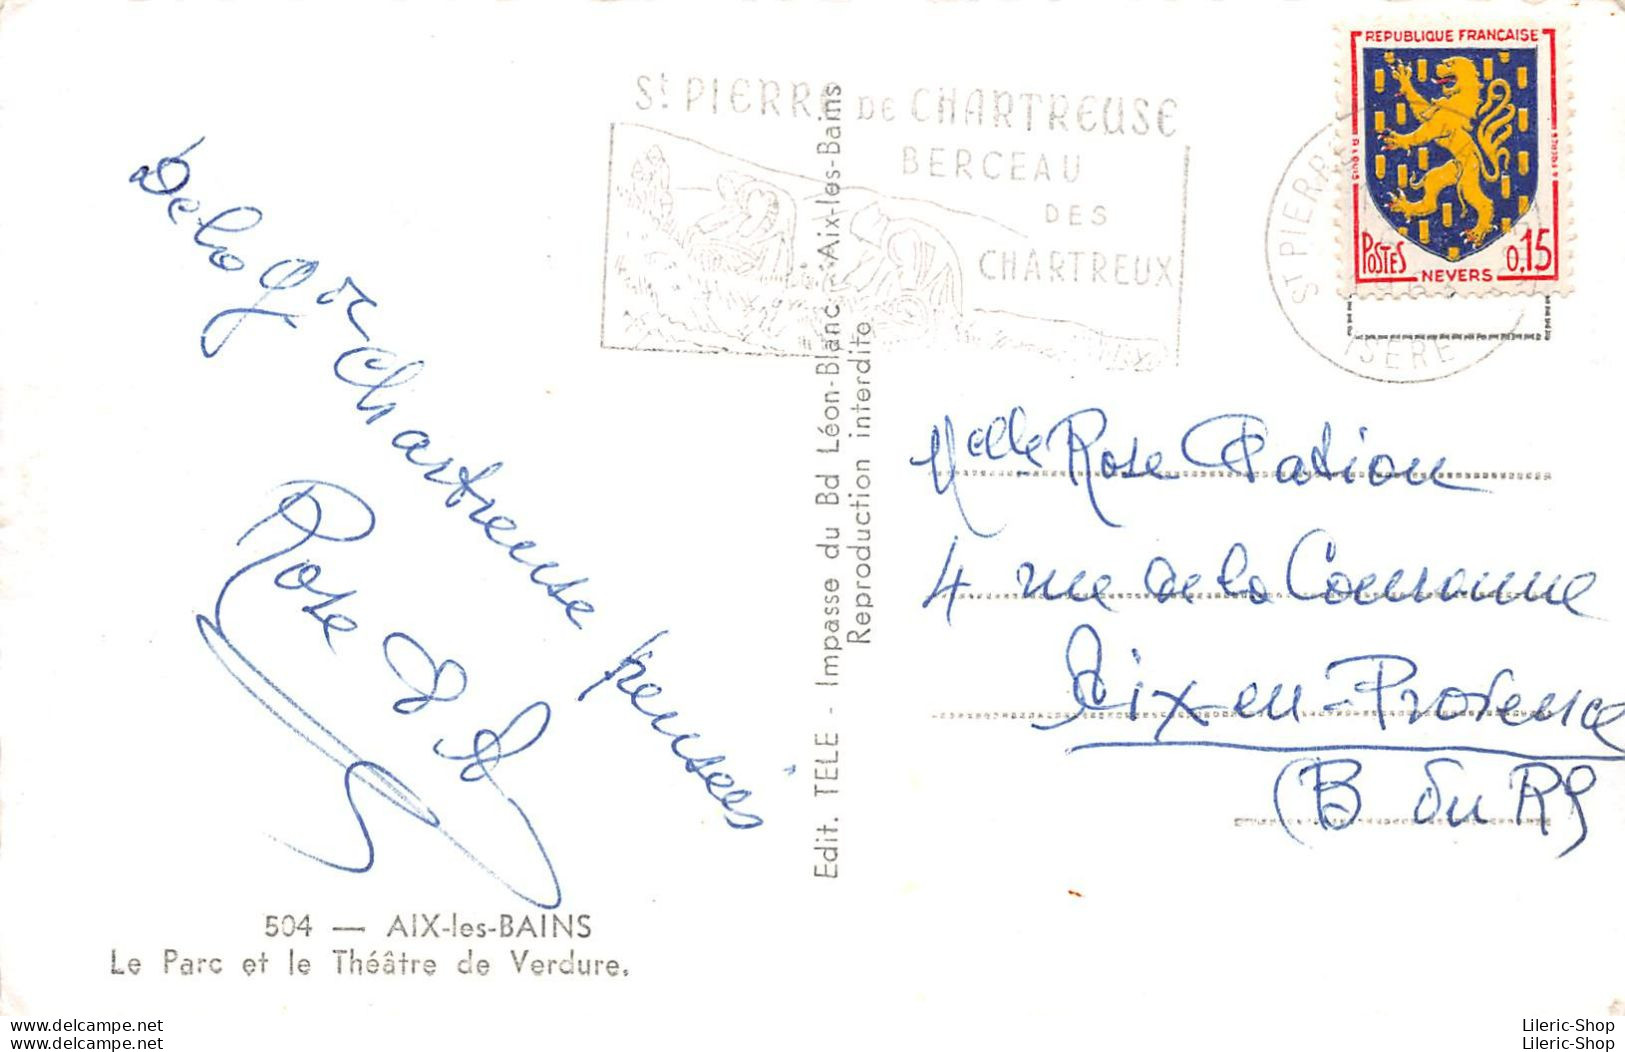 REPUBLIQUE FRANÇAISE
POSTES
NEVERS
0,15
St PIERRE DE CHARTREUSE
BERCEAU
DES
CHARTREUX
ST PIERR
ISERE
De la Gde Chartreuse pensées
Rose &
Edit. TELE - Impasse du Bd Léon-Blanc - Aix-les-Bains
Reproduction interdite
Melle Rose
4 rue de la Couronne
Aix en-Provence
(B du Rh
504 — AIX-les-BAINS
Le Parc et le Théâtre de Verdure.
www.delcampe.net
www.delcampe.net
Lileric-Shop
Lileric-Shop